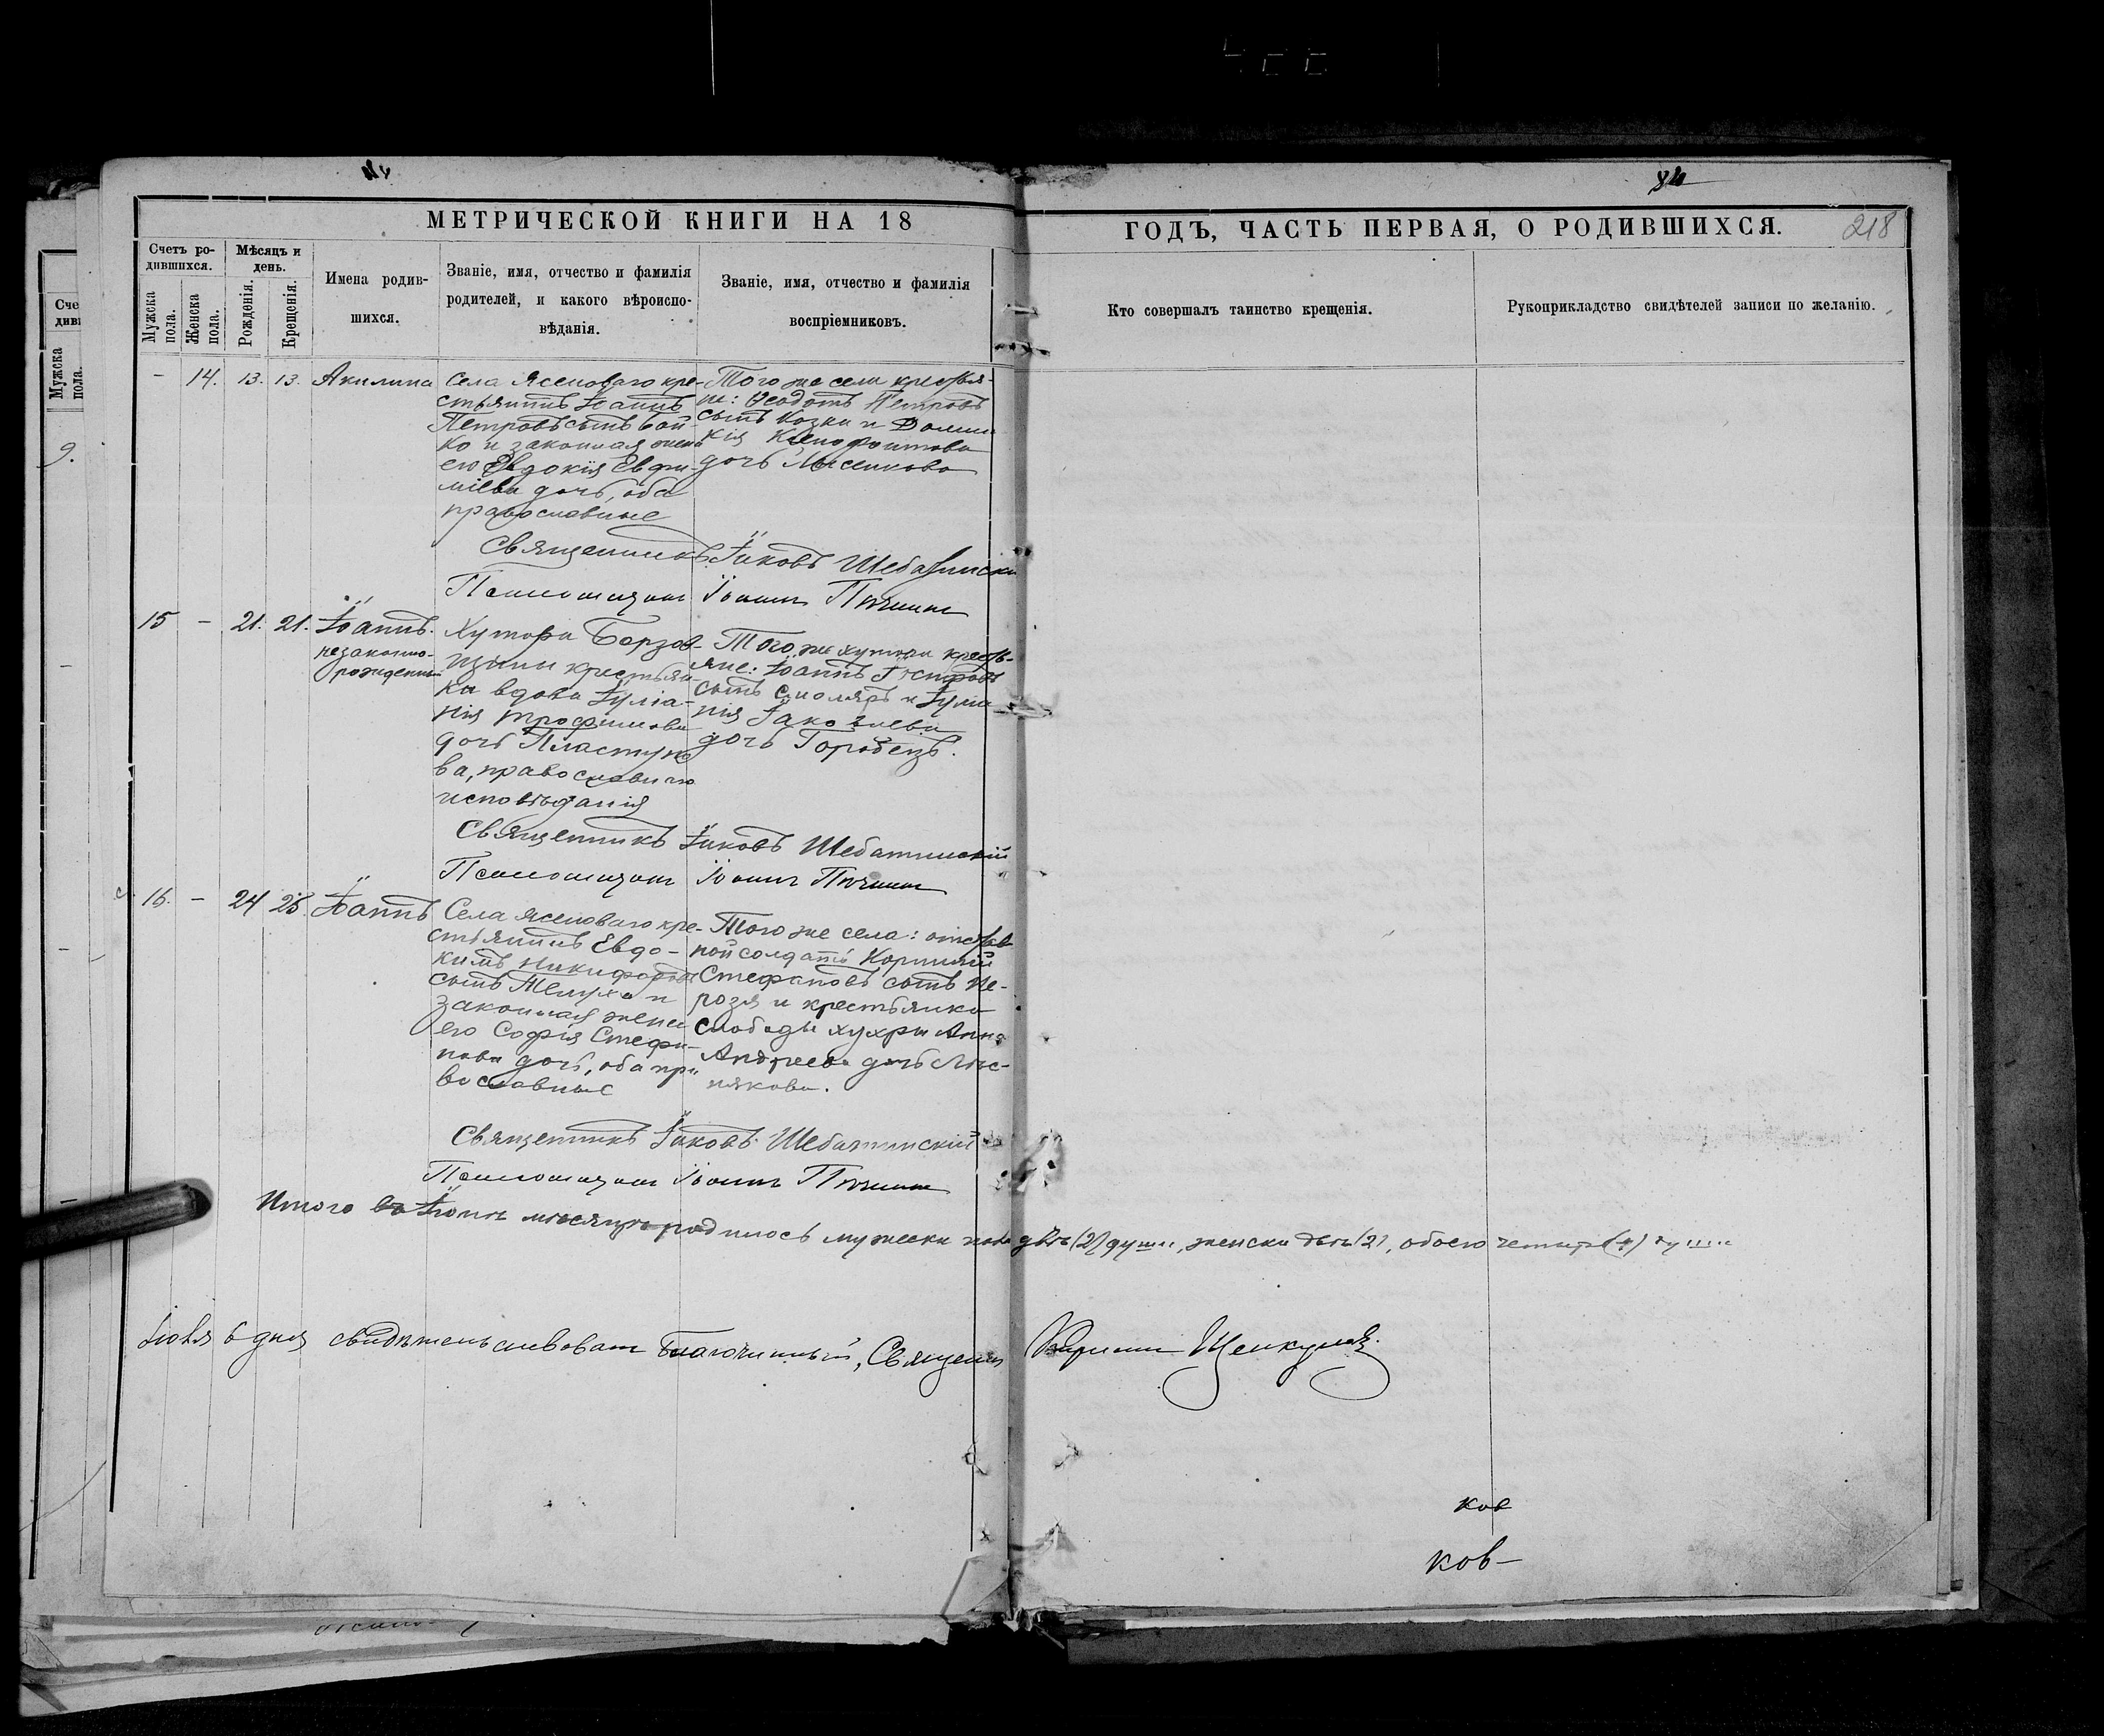 МЕТРИЧЕСКОЙ КНИГИ НА 18
ГОДЪ, ЧАСТЬ ПЕРВАЯ, О РОДИВШИХСЯ.
218
Счетъ ро-
дившихся.
Мужска
пола.
Женска
пола.
Мѣсяцъ и
день.
Рожденія.
Крещенія.
Имена родив-
шихся.
Званіе, имя, отчество и фамилія
родителей, и какого вѣроиспо-
вѣданія.
Званіе, имя, отчество и фамилія
воспріемниковъ.
Кто совершалъ таинство крещенія.
Рукоприкладство свидѣтелей записи по желанію.
Сче
диви
Мужска
пола.
9.
- 14. 13. 13. Акилина
Села Ясеноваго кре-
стьянинъ Іоаннъ
Петровъ сынъ Бой-
ко и законная жена
его Евдокія Евфи-
міева дочь, оба
православные
Того же села крестья-
не: Ѳеодотъ Петровъ
сынъ Козка и Домни-
кія Ксенофонтова
дочь Лысенкова
Священникъ Іаковъ
Псаломщикъ Іоаннъ
15 - 21. 21. Іоаннъ.
незаконно-
рожденный
Хутора Борзов-
крестьян-
ка вдова Іуліа-
нія Трофимова
дочь Пластуно
ва, православнаго
исповѣданія
Того же хутора кресть-
яне: Іоаннъ Петровъ
сынъ Столяръ и Іулiа
нія Іаковлева
дочь Горобецъ.
Священникъ Іаковъ
Псаломщикъ Іоаннъ
16. - 24 25. Іоаннъ
Села Ясеноваго кре-
стьянинъ Евдо-
кимъ Никифоровъ
сынъ и
законная жена
его Софія Стефа-
нова дочь, оба пра
вославные
Того же села: отстав
ной солдатъ Корнилій
Стефановъ сынъ
и крестьянка
слободы Хухры Анна
Андреева дочь Лѣс-
някова.
Священникъ Іаковъ
Псаломщикъ Іоаннъ
Итого въ Іюнѣ мѣсяцѣ родилось мужеска пола двѣ (2) души, женска двѣ (2), обоего четыре (4) души
Іюля 6 дня свидѣтельствовалъ Благочинный, Священникъ
ков
ков-